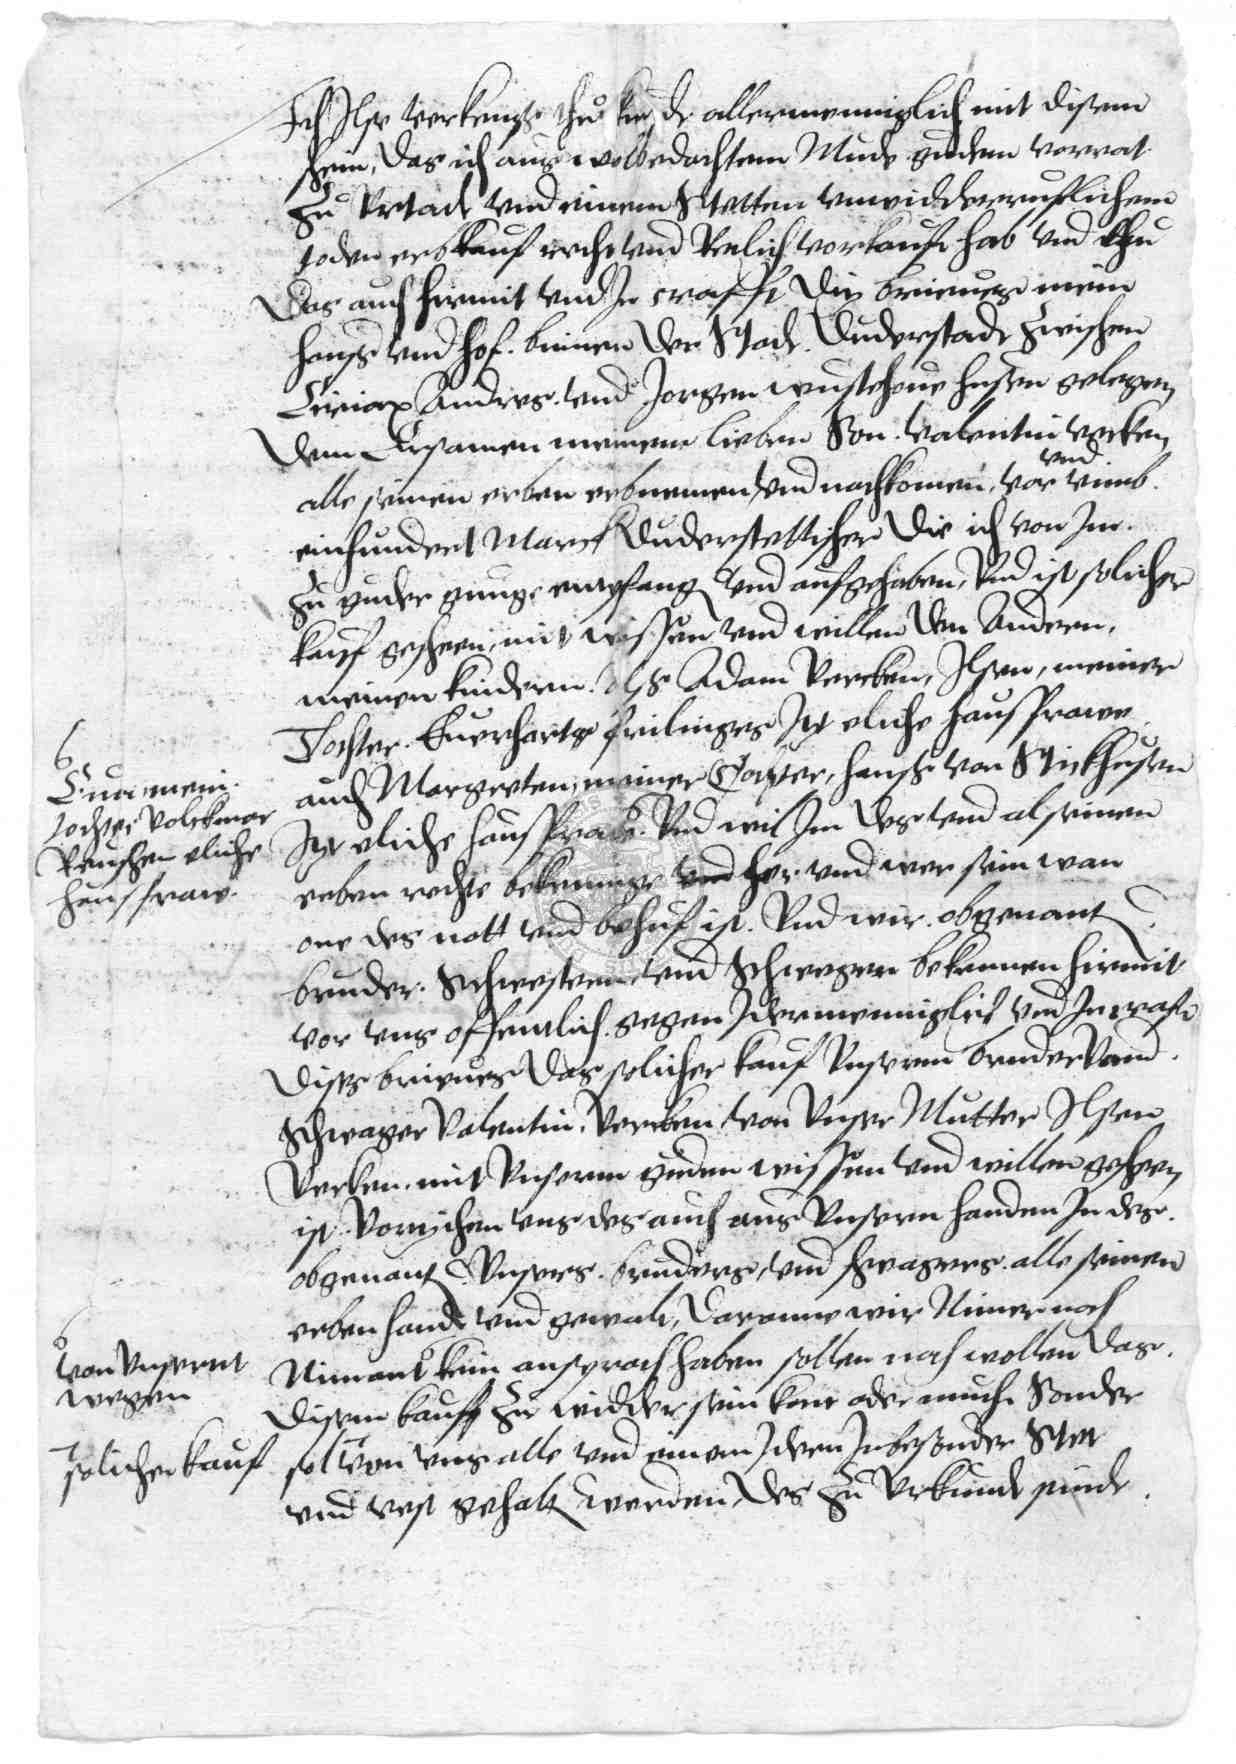 Ich Ilse Verkens thu kunde allermenniglich mit disem
schein, Das ich aus wolbedachtem Mude gudem vorrat
zu Urtade und einem Stetten unwidderruflichem
toden erbkauf recht und Redlich vorkauft hab und thu
Das auch hirmit und In crafft Dis brieues mein
hauß und hof. binnen der Stadt Duderstadt zwischen
Ciriax Andres und Jorgen wustehoue husern gelegen
Dem Ersamen meinem lieben Son. Valentin Verken
alle seinen erben erbnemen und nachkomen, vor und umb
einhundert Marck Duderstettischer Die ich von Im
zu guder gnuge empfang und aufgehaben, Und ist solicher
kauf gescheen, mit wissen und willen den Andern,
meinen kindern. als Adam Vercken, Ilsen, meiner
Tochter. Euerharts frilinges Itz eliche hausfrawe
auch Margreten, meiner Tochter, hanß von Stickhusen
Itz eliche hausfrawe. Und wil Im des und al seinen
erben rechte bekenninge und her und wer sein wan
one des nott und behuf ist. Und wir obgenant
bruder. Schwestern und Schweger bekennen hirmit
vor uns offentlich gegen Idermenniglich und In craft
Disß brieues Das solicher kauf Unserm bruder und
Schwager Valentin. Vercken von Unser Mutter Ilsen
Verken. mit Unserm guden wissen und willen gescheen
ist. Vorzichen uns des auch aus Unsern handen In des
obgenant Unsers. bruders, und schwagers. alle seinen
erben hande und gewalt, Daranne wir Nimer noch
Nimant kein ansprach haben sollen noch wollen Das
Disem kauff zu widder sein kone oder muche Sonder
sol von uns alle und einem Idern Inbesonder Stet
und vest gehalt werden, Des zu Urkunde sinde
mein
tochter Volckmar
Reuschen eliche
hausfraw.
von Unsernt
wegen
solicher kauf